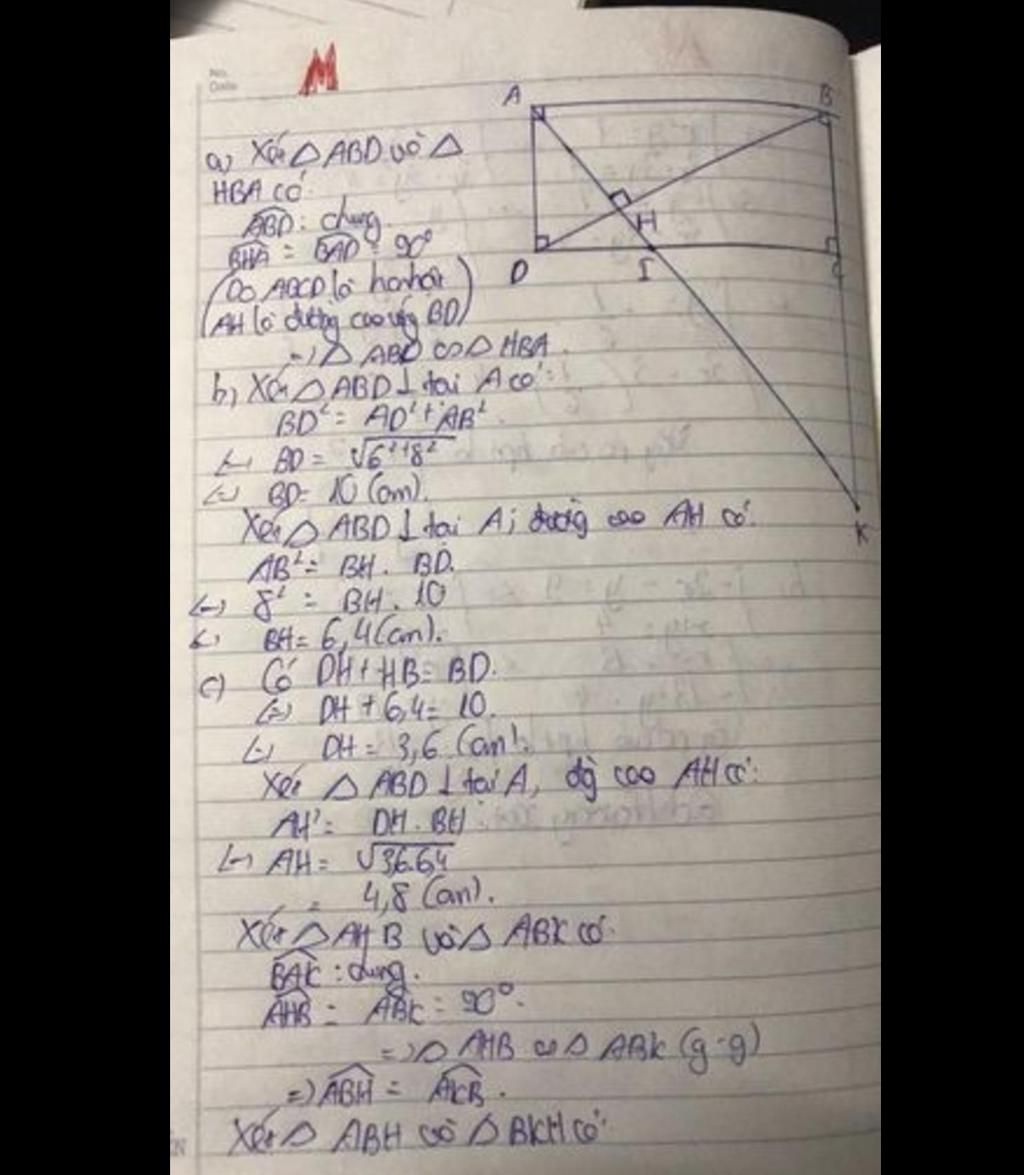 No.
Date
M
A
B
D
I
H
C
K
a) Xét △ ABD và △
HBA có:
ABD: chung.
BHA = BAD = 90°
(Do ABCD là hcnhật
AH là đường cao ứng BD)
=> △ ABD ∽ △ HBA.
b, Xét △ ABD ⊥ tại A có:
BD² = AD² + AB²
<=> BD = √6²+8²
<=> BD = 10 (cm).
Xét △ ABD ⊥ tại A; đường cao AH có:
AB² = BH. BD.
<=> 8² = BH. 10
<=> BH = 6,4 (cm).
c) Có DH + HB = BD.
<=> DH + 6,4 = 10.
<=> DH = 3,6 (cm).
Xét △ ABD ⊥ tại A, đg cao AH có:
AH² = DH. BH
<=> AH = √3,6.6,4
= 4,8 (cm).
Xét △ AHB và △ ABK có:
BAK: chung.
AHB = ABK = 90°.
=> △ AHB ∽ △ ABK (g-g)
=> ABH = AKB.
Xét △ ABH và △ BKH có: